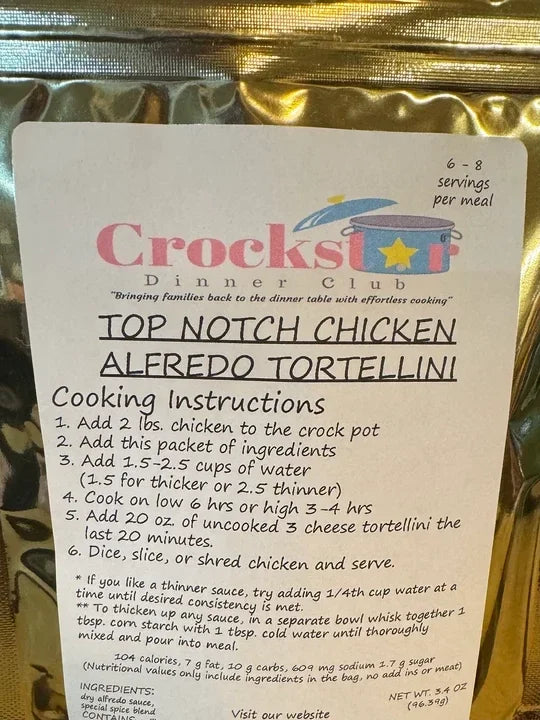 6 - 8
servings
per meal
Crockstar
Dinner Club
"Bringing families back to the dinner table with effortless cooking"
TOP NOTCH CHICKEN
ALFREDO TORTELLINI
Cooking Instructions
1. Add 2 lbs. chicken to the crock pot
2. Add this packet of ingredients
3. Add 1.5-2.5 cups of water
(1.5 for thicker or 2.5 thinner)
4. Cook on low 6 hrs or high 3-4 hrs
5. Add 20 oz. of uncooked 3 cheese tortellini the
last 20 minutes.
6. Dice, slice, or shred chicken and serve.
* If you like a thinner sauce, try adding 1/4th cup water at a
time until desired consistency is met.
** To thicken up any sauce, in a separate bowl whisk together 1
tbsp. corn starch with 1 tbsp. cold water until thoroughly
mixed and pour into meal.
104 calories, 7 g fat, 10 g carbs, 609 mg sodium 1.7 g sugar
(Nutritional values only include ingredients in the bag, no add ins or meat)
INGREDIENTS:
dry alfredo sauce,
special spice blend
CONTAINS
Visit our website
NET WT. 3.4 OZ
(96.39g)